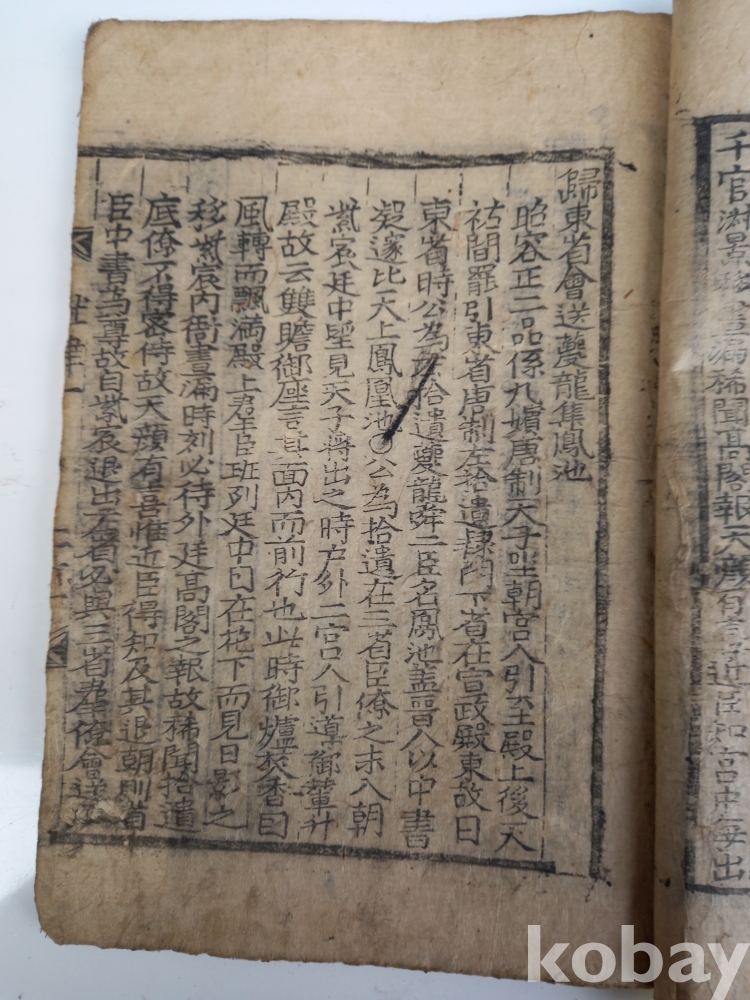 千官淑景移晝漏稀聞高閣報天顏有喜近臣知宮中每出
歸東省會送夔龍集鳳池
昭容正二品係九嬪唐制天子坐朝宮人引至殿上後天
祐間罷引東省唐制左拾遺隸門下省在宣政殿東故曰
東省時公為左拾遺夔龍舜二臣名鳳池蓋晉人以中書
凝邃比天上鳳凰池○公為拾遺在三省臣僚之末入朝
紫宸廷中望見天子將出之時戶外二宮人引導御輦升
殿故云雙瞻御座言其面內而前行也此時御爐焚香因
風轉而飄滿殿上羣臣班列廷中日在花下而見日影之
移紫宸內衙晝漏時刻必待外廷高閣之報故稀聞拾遺
底僚不得密侍故天顏有喜惟近臣得知及其退朝則省
臣中書為尊故自紫宸退出左省必與三省羣僚會送
kobay